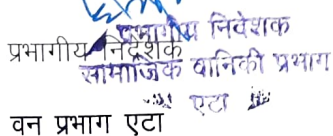 प्रभागीय निदेशक
प्रभागीय निदेशक
सामाजिक वानिकी प्रभाग
एटा
वन प्रभाग एटा